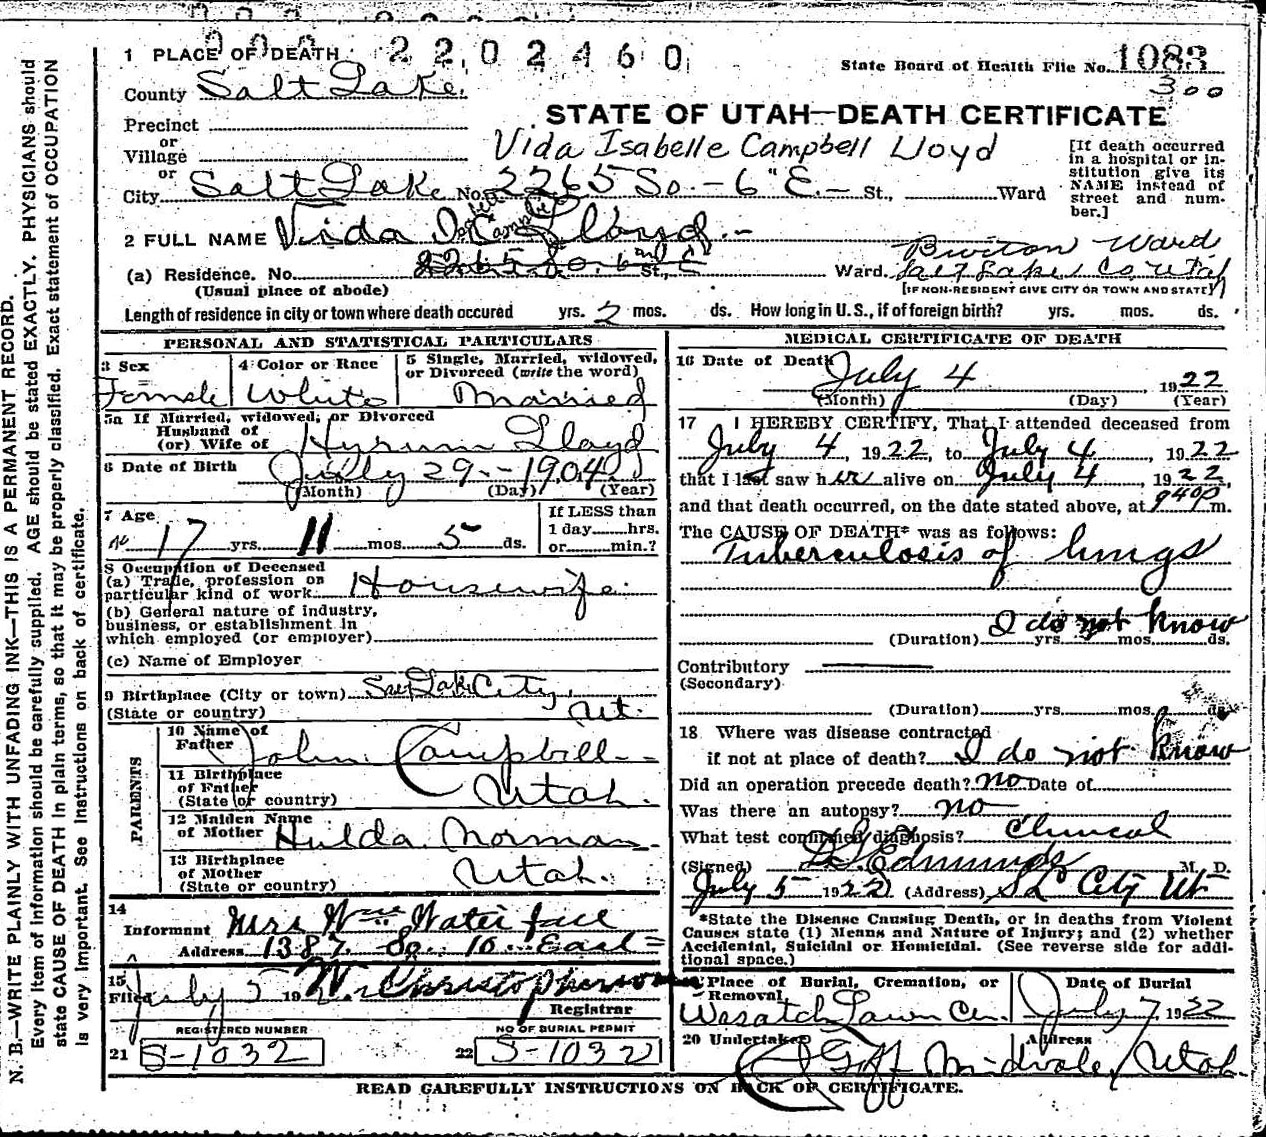 2202460
1 PLACE OF DEATH
State Board of Health File No. 1083
300
County Salt Lake.
STATE OF UTAH—DEATH CERTIFICATE
Precinct
or
Village
Vida Isabelle Campbell Lloyd
[If death occurred in a hospital or institution give its NAME instead of street and number.]
or
City Salt Lake No. 2265 So. - 6" E. - St., Ward
2 FULL NAME Vida I. C. Lloyd. -
Isabelle Campbell
Burton Ward
(a) Residence. No. 2265 So. 6nd St., E Ward. Salt Lake Co Utah
(Usual place of abode) [IF NON-RESIDENT GIVE CITY OR TOWN AND STATE]
Length of residence in city or town where death occured yrs. 2 mos. ds. How long in U. S., if of foreign birth? yrs. mos. ds.
PERSONAL AND STATISTICAL PARTICULARS
3 Sex 4 Color or Race 5 Single, Married, widowed, or Divorced (write the word)
Female White Married
5a If Married, widowed, or Divorced
Husband of
(or) Wife of Hyrum Lloyd
6 Date of Birth July 29 - - 1904
(Month) (Day) (Year)
7 Age 17 yrs. 11 mos. 5 ds.
If LESS than
1 day......hrs.
or......min.?
8 Occupation of Deceased
(a) Trade, profession or
particular kind of work Housewife
(b) General nature of industry,
business, or establishment in
which employed (or employer)
(c) Name of Employer
9 Birthplace (City or town) Salt Lake City,
(State or country) Ut.
PARENTS
10 Name of
Father John Campbell - -
11 Birthplace
of Father
(State or country) Utah.
12 Maiden Name
of Mother Hulda Norman
13 Birthplace
of Mother
(State or country) Utah.
14
Informant Mrs Wm Waterfall
Address 1387 So. 10 East
15
Filed July 5 19 W. Christopherson
Registrar
REGISTERED NUMBER
NO OF BURIAL PERMIT
21 S-1032
22 S-1032
MEDICAL CERTIFICATE OF DEATH
16 Date of Death July 4 1922
(Month) (Day) (Year)
17 I HEREBY CERTIFY, That I attended deceased from
July 4, 1922, to July 4, 1922
that I last saw her alive on July 4, 1922,
and that death occurred, on the date stated above, at 940p m.
The CAUSE OF DEATH* was as follows:
Tuberculosis of lungs
(Duration) I do not know yrs. mos. ds.
Contributory
(Secondary)
(Duration) yrs. mos. ds.
18 Where was disease contracted
if not at place of death? I do not know
Did an operation precede death? no Date of
Was there an autopsy? no
What test confirmed diagnosis? Clinical
(Signed) Edmunds M. D.
July 5 1922 (Address) SL City Ut
*State the Disease Causing Death, or in deaths from Violent
Causes state (1) Means and Nature of Injury; and (2) whether
Accidental, Suicidal or Homicidal. (See reverse side for addi-
tional space.)
Place of Burial, Cremation, or Removal Date of Burial
Wasatch Lawn Cem. July 7 1922
20 Undertaker Address
Goff Midvale, Utah.
READ CAREFULLY INSTRUCTIONS ON BACK OF CERTIFICATE.
N. B.—WRITE PLAINLY WITH UNFADING INK—THIS IS A PERMANENT RECORD.
Every item of information should be carefully supplied. AGE should be stated EXACTLY. PHYSICIANS should
state CAUSE OF DEATH in plain terms, so that it may be properly classified. Exact statement of OCCUPATION
is very important. See instructions on back of certificate.